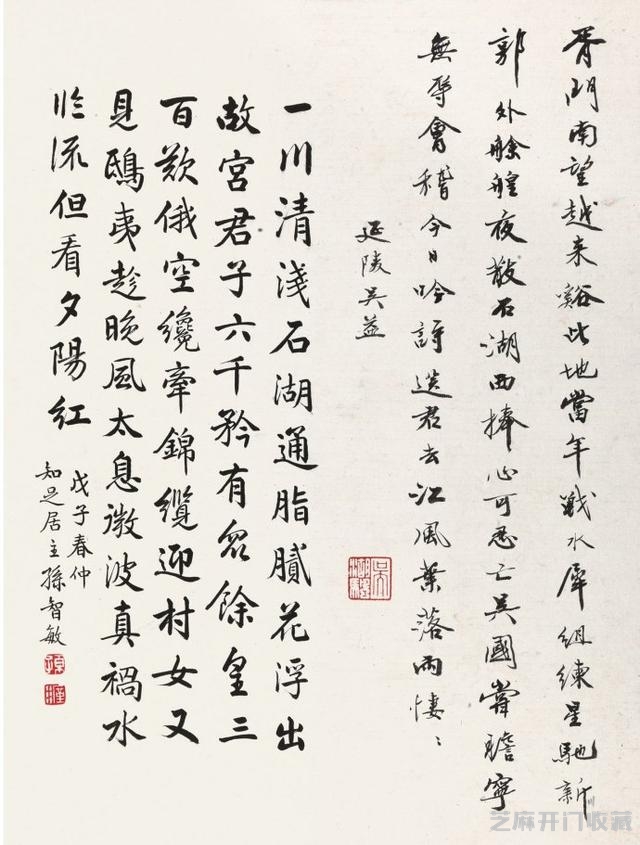 胥門南望越来谿此地當年戰水犀組練星馳新
郭外艅艎夜散石湖西捧心可忍亡吳國嘗膽寧
無辱會稽今日吟詩送君去江風葉落雨悽〻
延陵吳益
一川清淺石湖通脂膩花浮出
故宮君子六千矜有眾餘皇三
百歎俄空纔牽錦纜迎村女又
見鴟夷趁晚風太息微波真禍水
臨流但看夕陽紅
戊子春仲
知足居主孫智敏
芝麻开门收藏